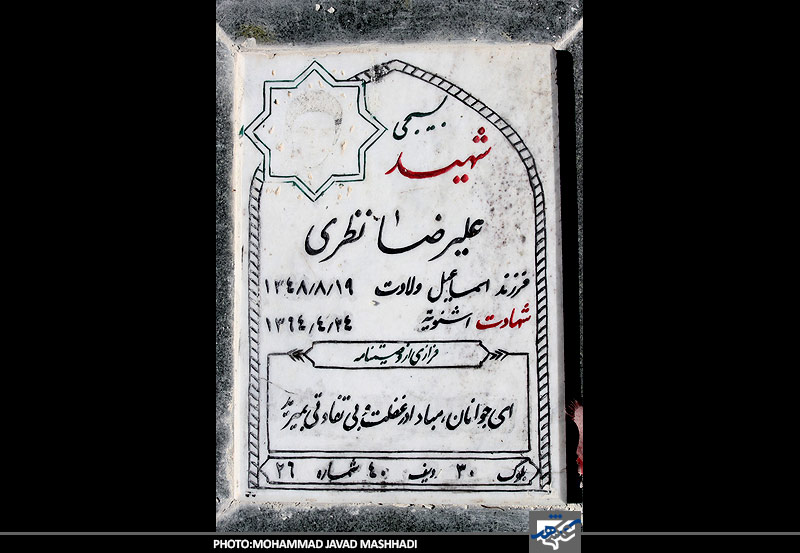 بسیجی
شهید
علیرضا نظری
فرزند اسماعیل ولادت ۱۳٤۸/۸/۱۹
شهادت اشنویه ۱۳٦٤/٤/۲٤
فرازی از وصیتنامه
ای جوانان، مبادا در غفلت و بی تفاوتی بمیرید
بلوک ۳۰ ردیف ٤۰ شماره ۲٦
PHOTO:MOHAMMAD JAVAD MASHHADI